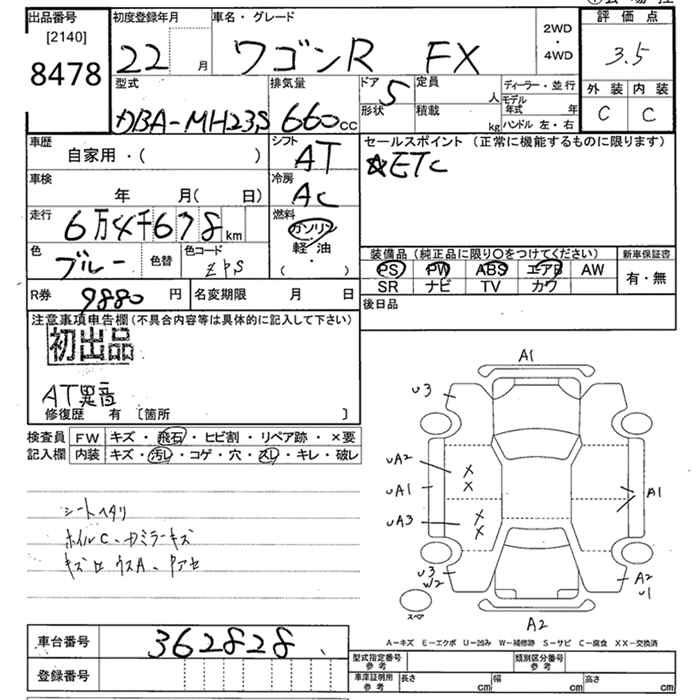 出品番号 初度登録年月 車名・グレード 評価点
[2140] 22 月 ワゴンR FX 2WD・4WD 3.5
8478
型式 排気量 ドア 定員 ディーラー・並行 外装 内装
DBA-MH23S 660cc 5 人 モデル年式 年 C C
形状 積載 kg ハンドル 左・右
車歴 シフト セールスポイント (正常に機能するものに限ります)
自家用・( ) AT ☆ETC
車検 冷房
年 月(日) AC
走行 燃料
6万4千678km ガソリン
軽油
( ・ )
色 色替 色コード 装備品(純正品に限り○をつけてください) 新車保証書
ブルー ZPS PS PW ABS エアB AW 有・無
SR ナビ TV カワ
R券 9880円 名変期限 月 日 後日品
注意事項申告欄(不具合内容等は具体的に記入して下さい)
初出品
AT異音
修復歴 有 [箇所 ]
検査員 FW キズ・飛石・ヒビ割・リペア跡・×要
記入欄 内装 キズ・汚レ・コゲ・穴・スレ・キレ・破レ
シートヘタリ
ホイルC、
ミラーキズ
A1
U3
UA2
UA1
UA3
A1
U3
W2
A2
U1
スペア
A2
A-キズ E-エクボ U-凹み W-補修跡 S-サビ C-腐食 XX-交換済
車台番号 362828
登録番号
型式指定番号 参考 類別区分番号 参考
車庫証明用 参考 長さ cm 幅 cm 高さ cm